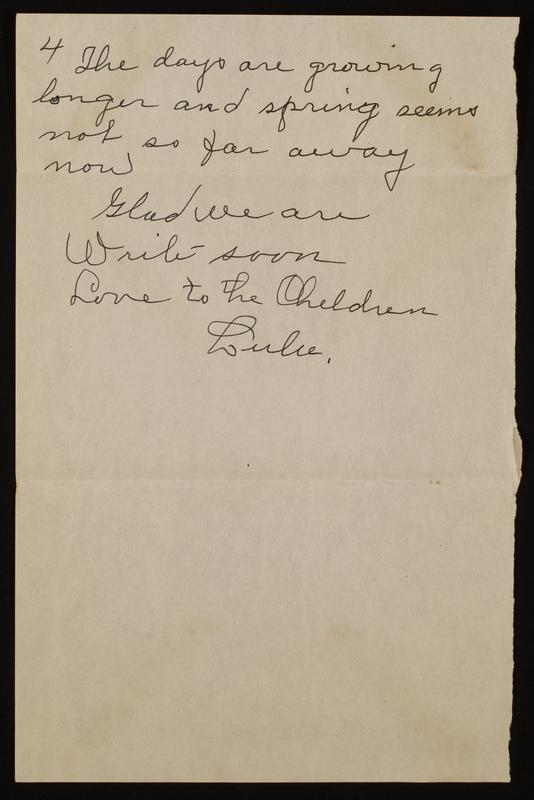 4 The days are growing
longer and spring seems
not so far away
now
Glad we are
Write soon
Love to the Children